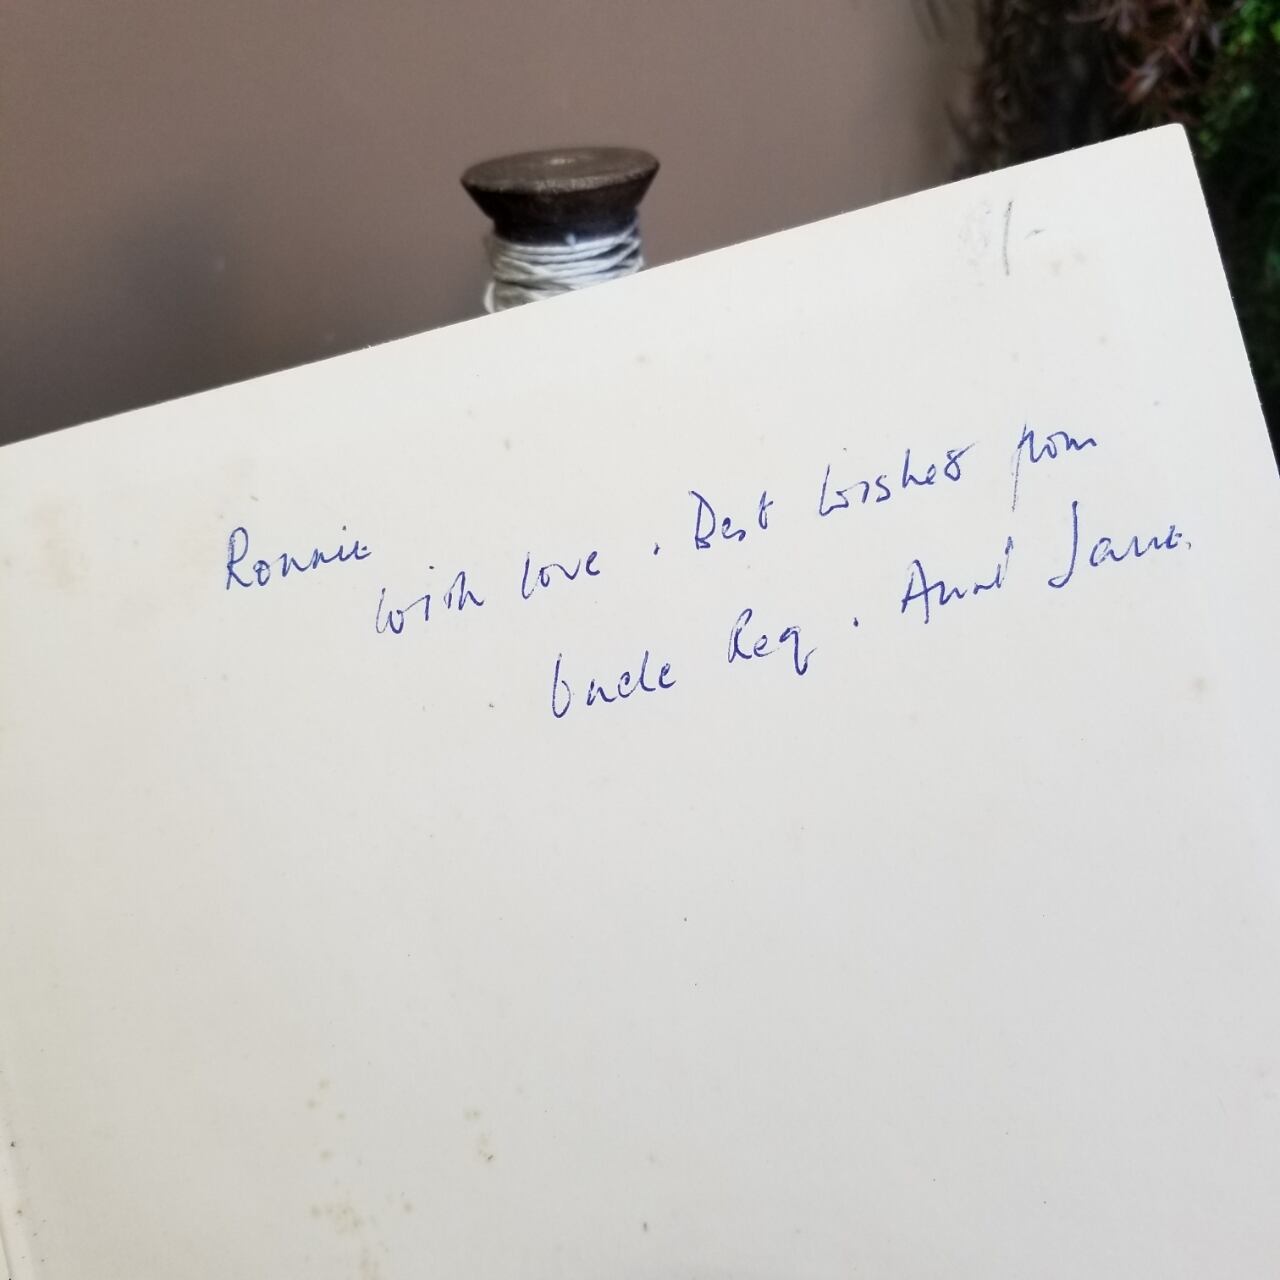 Ronnie
with love . Best wishes from
Uncle Reg . Aunt Jane.